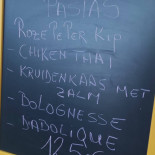 PASTAS
ROZE PEPER KIP
- CHIKEN THAI
- KRUIDENKAAS MET
ZALM
- BOLOGNESSE
- DABOLIQUE
12,5€